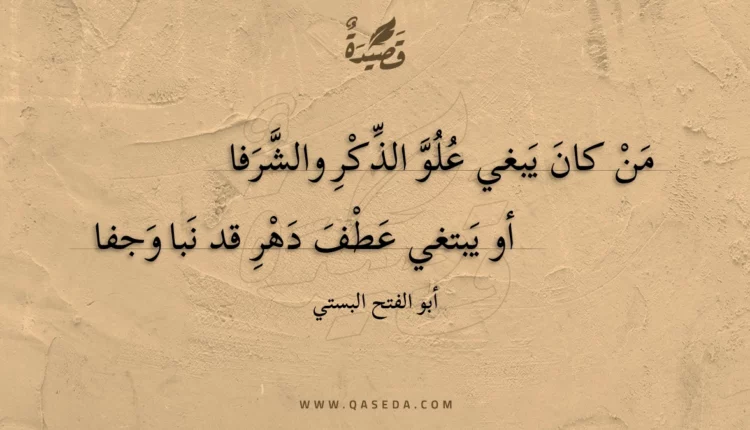 قَصِيْدَةٌ
مَنْ كانَ يَبغي عُلُوَّ الذِّكْرِ والشَّرَفا
أو يَبتغي عَطْفَ دَهْرِ قد نَبا وَجفا
أبو الفتح البستي
WWW.QASEDA.COM